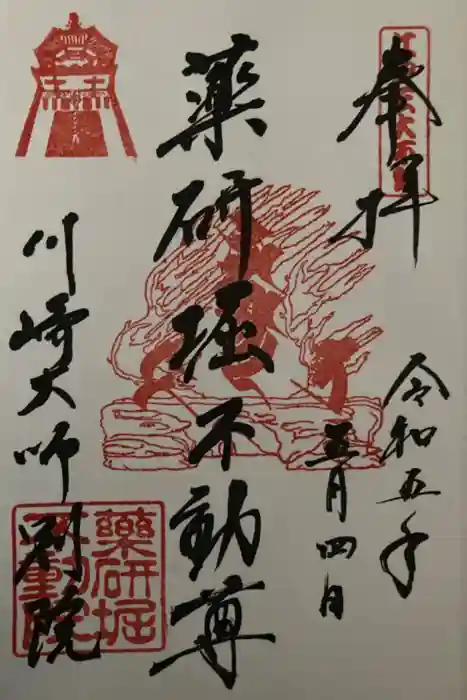 奉拝
令和五年
五月四日
薬研堀不動尊
川崎大師別院
薬研堀